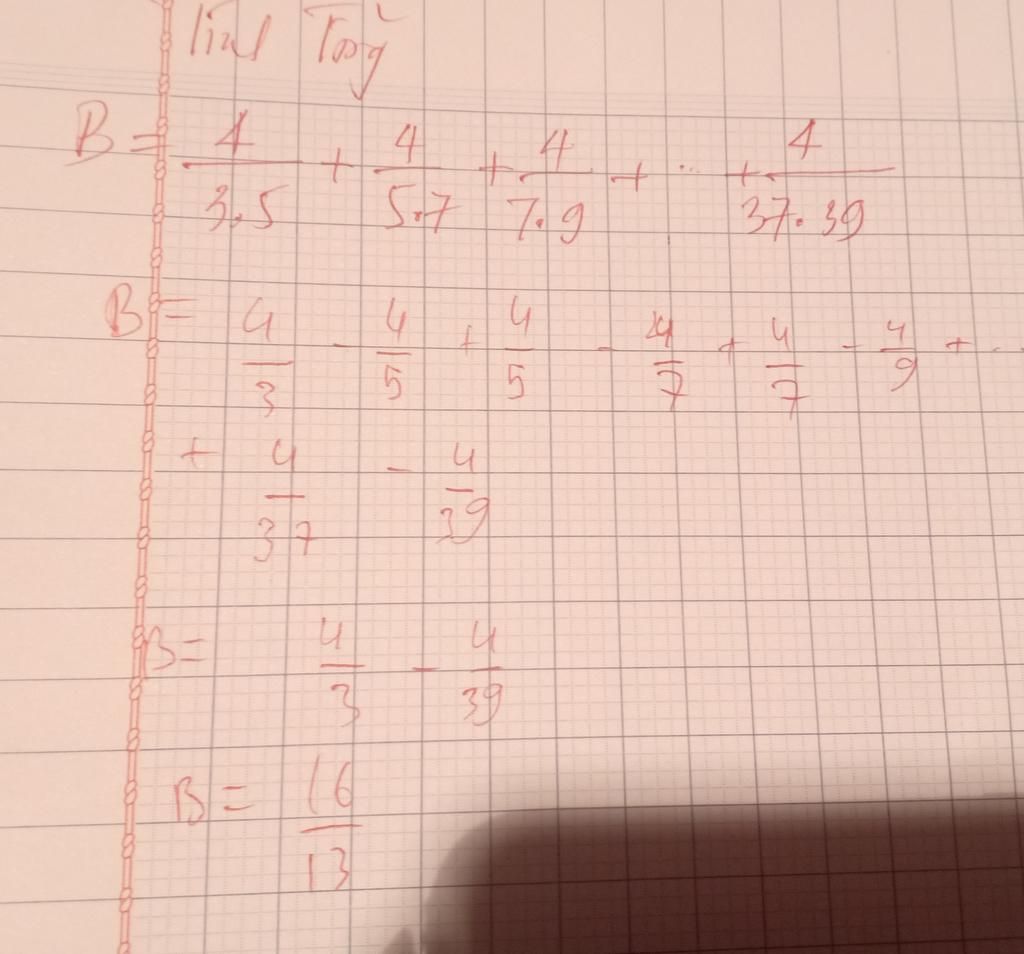 Tính Tổng
B = 4/3.5 + 4/5.7 + 4/7.9 + ... + 4/37.39
B = 4/3 - 4/5 + 4/5 - 4/7 + 4/7 - 4/9 + ..
+ 4/37 - 4/39
B = 4/3 - 4/39
B = 16/13